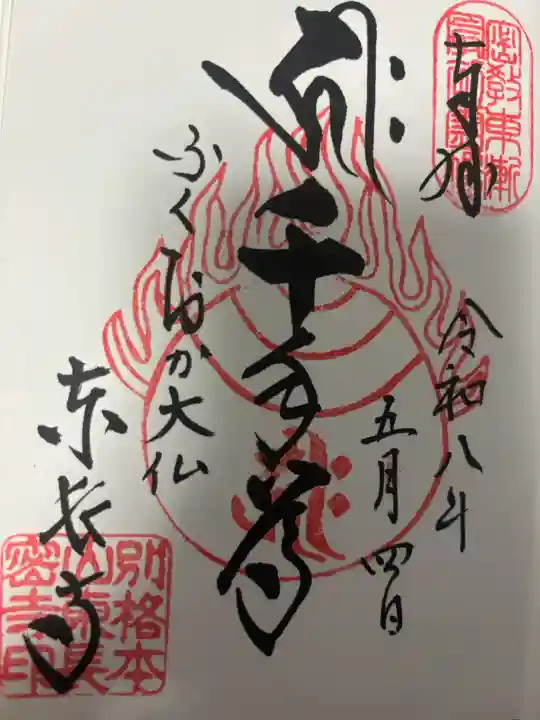 奉拝
密教東漸
令和八年
五月四日
千手尊
ふくおか大仏
東長寺
別格本
山東長
密寺印